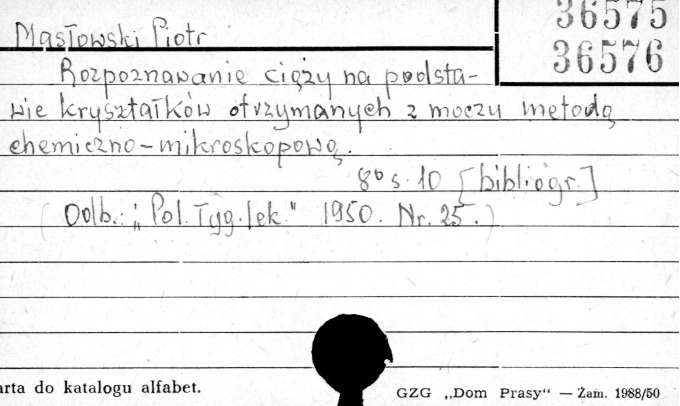 36575
Masłowski Piotr
36576
Rozpoznawanie ciąży na podsta-
wie kryształków otrzymanych z moczu metodą
chemiczno-mikroskopową.
8° s. 10 [bibliogr.]
(Odb.: „Pol. Tyg. lek." 1950. Nr. 25.)
arta do katalogu alfabet.
GZG „Dom Prasy“ — Żam. 1988/50